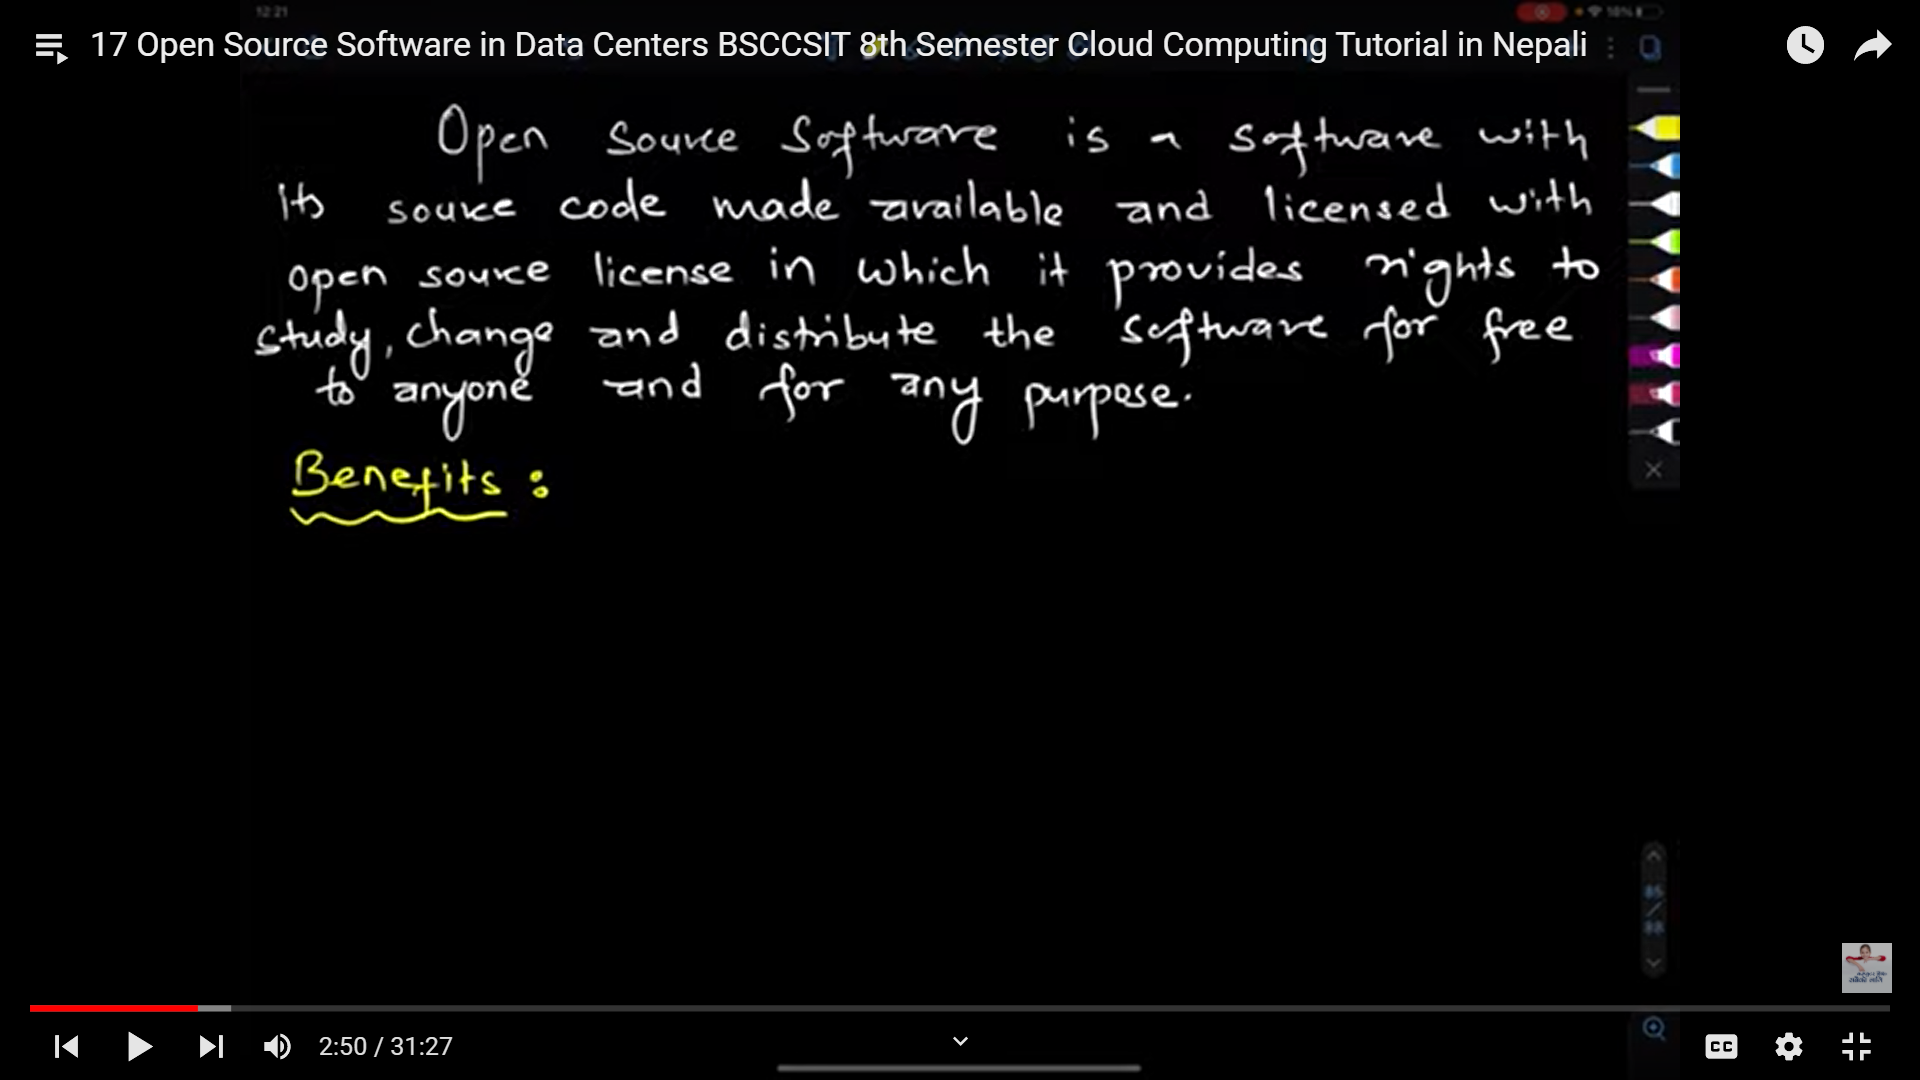 12:21
18%
17 Open Source Software in Data Centers BSCCSIT 8th Semester Cloud Computing Tutorial in Nepali
Open Source Software is a software with
its source code made available and licensed with
open source license in which it provides rights to
study, change and distribute the software for free
to anyone and for any purpose.
Benefits :
85
/
88
2:50 / 31:27
CC